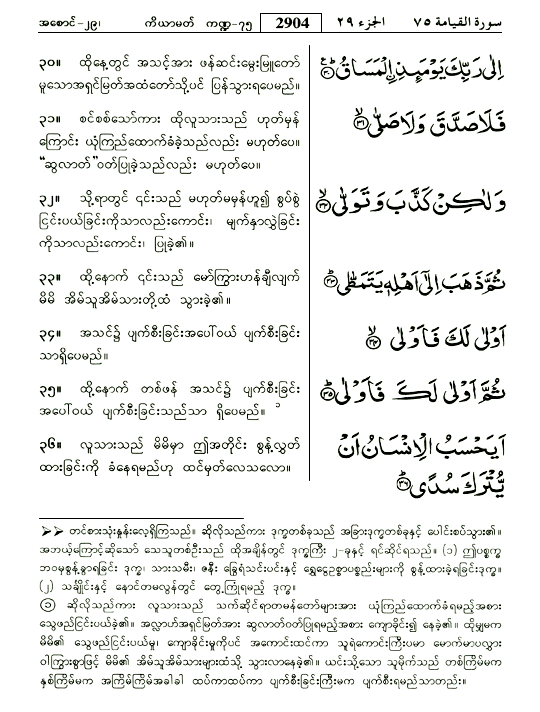 အစောင်-၂၉၊ ကိယာမတ် ကဏ္ဍ-၇၅ 2904 الجزء ٢٩ سورة القيامة ٧٥
၃၀။ ထိုနေ့တွင် အသင့်အား ဖန်ဆင်းမွေးမြူတော်
မူသောအရှင်မြတ်အထံတော်သို့ပင် ပြန်သွားရပေမည်။
اِلٰى رَبِّكَ يَوْمَئِذِ ۨالْمَسَاقُ ؕ ﴿۳۰﴾
၃၁။ စင်စစ်သော်ကား ထိုလူသားသည် ဟုတ်မှန်
ကြောင်း ယုံကြည်ထောက်ခံခဲ့သည်လည်း မဟုတ်ပေ။
“ဆွလာတ်”ဝတ်ပြုခဲ့သည်လည်း မဟုတ်ပေ။
فَلَا صَدَّقَ وَلَا صَلّٰى ۙ ﴿۳۱﴾
၃၂။ သို့ရာတွင် ၎င်းသည် မဟုတ်မမှန်ဟူ၍ စွပ်စွဲ
ငြင်းပယ်ခြင်းကိုသာလည်းကောင်း၊ မျက်နှာလွှဲခြင်း
ကိုသာလည်းကောင်း၊ ပြုခဲ့၏။
وَلٰكِنْ كَذَّبَ وَتَوَلّٰى ۙ ﴿۳۲﴾
၃၃။ ထို့နောက် ၎င်းသည် မော်ကြွားဟန်ချီလျက်
မိမိ အိမ်သူအိမ်သားတို့ထံ သွားခဲ့၏။
ثُمَّ ذَهَبَ اِلٰٓى اَهْلِهٖ يَتَمَطّٰى ؕ ﴿۳۳﴾
၃၄။ အသင်၌ ပျက်စီးခြင်းအပေါ်ဝယ် ပျက်စီးခြင်း
သာရှိပေမည်။
اَوْلٰى لَكَ فَاَوْلٰى ۙ ﴿۳۴﴾
၃၅။ ထို့နောက် တစ်ဖန် အသင်၌ ပျက်စီးခြင်း
အပေါ်ဝယ် ပျက်စီးခြင်းသည်သာ ရှိပေမည်။ ၁
ثُمَّ اَوْلٰى لَكَ فَاَوْلٰى ؕ ﴿۳۵﴾
၃၆။ လူသားသည် မိမိမှာ ဤအတိုင်း စွန့်လွှတ်
ထားခြင်းကို ခံနေရမည်ဟု ထင်မှတ်လေသလော။
اَيَحْسَبُ الْاِنْسَانُ اَنْ
يُّتْرَكَ سُدًى ؕ ﴿۳۶﴾
➢➢ တင်စားသုံးနှုန်းလေ့ရှိကြသည်။ ဆိုလိုသည်ကား ဒုက္ခတစ်ခုသည် အခြားဒုက္ခတစ်ခုနှင့် ပေါင်းစပ်သွား၏။
အဘယ့်ကြောင့်ဆိုသော် သေသူတစ်ဦးသည် ထိုအချိန်တွင် ဒုက္ခကြီး ၂-ခုနှင့် ရင်ဆိုင်ရသည်။ (၁) ဤပစ္စက္ခ
ဘဝမှစွန့်ခွာရခြင်း ဒုက္ခ၊ သားသမီး၊ ဇနီး ခြွေရံသင်းပင်းနှင့် ရွှေငွေဥစ္စာပစ္စည်းများကို စွန့်ထားခဲ့ရခြင်းဒုက္ခ။
(၂) သင်္ချိုင်းနှင့် နောင်တမလွန်တွင် တွေ့ကြုံရမည့် ဒုက္ခ။
① ဆိုလိုသည်ကား လူသားသည် သက်ဆိုင်ရာတမန်တော်များအား ယုံကြည်ထောက်ခံရမည့်အစား
သွေဖည်ငြင်းပယ်ခဲ့၏။ အလ္လာဟ်အရှင်မြတ်အား ဆွလာတ်ဝတ်ပြုရမည့်အစား ကျောခိုင်း၍ နေခဲ့၏။ ထိုမျှမက
မိမိ၏ သွေဖည်ငြင်းပယ်မှု၊ ကျောခိုင်းမှုကိုပင် အကောင်းထင်ကာ သူရဲကောင်းကြီးပမာ မောက်မာပလွှား
ဝါကြွားစွာဖြင့် မိမိ၏ အိမ်သူအိမ်သားများထံသို့ သွားလာနေခဲ့၏။ ယင်းသို့သော သူမိုက်သည် တစ်ကြိမ်မက
နှစ်ကြိမ်မက အကြိမ်ကြိမ်အခါခါ ထပ်ကာထပ်ကာ ပျက်စီးခြင်းကြီးမက ပျက်စီးရမည်သာတည်း။